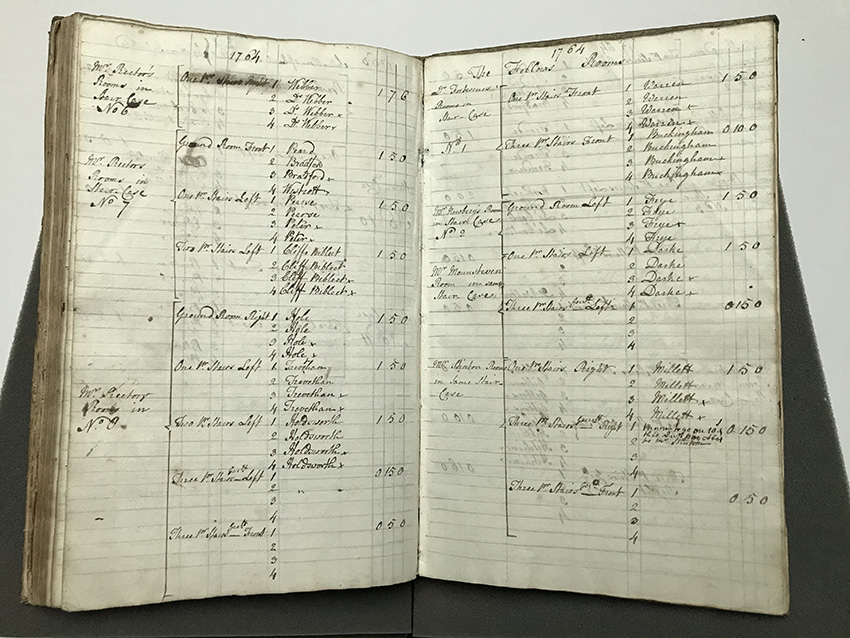 1764.
Mr. Rector's
Rooms in
Stair Case
No 6
One Pr. Stairs Right 1 Webber
2 Dr. Webber 1 7 6
3 Dr. Webber x
4 Dr. Webber x
Ground Room Front 1 Beard
2 Bradford 1 5 0
3 Bradford x
4 Westcott
Mr. Rectors
Rooms in
Stair Case
No 7
One Pr. Stairs Left 1 Pearse 1 5 0
2 Pearse
3 Peter x
4 Peter x
Two Pr. Stairs Left 1
2 1 5 0
3
4
Ground Room Right 1 Hole 1 5 0
2 Hole
3 Hole x
4 Hole x
One Pr. Stairs Left 1 Trevethan 1 5 0
2 Trevethan
3 Trevethan x
4 Trevethan x
Mr. Rectors
Rooms in
No 8
Two Pr. Stairs Left 1 Holdsworth 1 5 0
2 Holdsworth
3 Holdsworth x
4 Holdsworth x
Three Pr. Stairs Left 1 0 15 0
2
3
4
Three Pr. Stairs Front 1 0 5 0
2
3
4
1764
The Fellows Rooms
Rooms in
Stair Case
No 1
One Pr. Stairs Front 1 Warren 1 5 0
2 Warren
3 Warren x
4 Warren x
Three Pr. Stairs Front 1 Buckingham 0 10 0
2 Buckingham
3 Buckingham x
4 Buckingham x
Room
in Stair Case
No 2
Ground Room Left 1 Frye 1 5 0
2 Frye
3 Frye x
4 Frye
Mr. Mounsteven
Room in same
Stair Case
One Pr. Stairs Left 1 Darke 1 5 0
2 Darke
3 Darke x
4 Darke x
Three Pr. Stairs Left 1 0 15 0
2
3
4
Mr. Stinton Rooms
in same Stair
Case
One Pr. Stairs Right 1 Millett 1 5 0
2 Millett
3 Millett x
4 Millett x
Three Pr. Stairs Right 1 0 15 0
2
3
4
Three Pr. Stairs Front 1 0 5 0
2
3
4